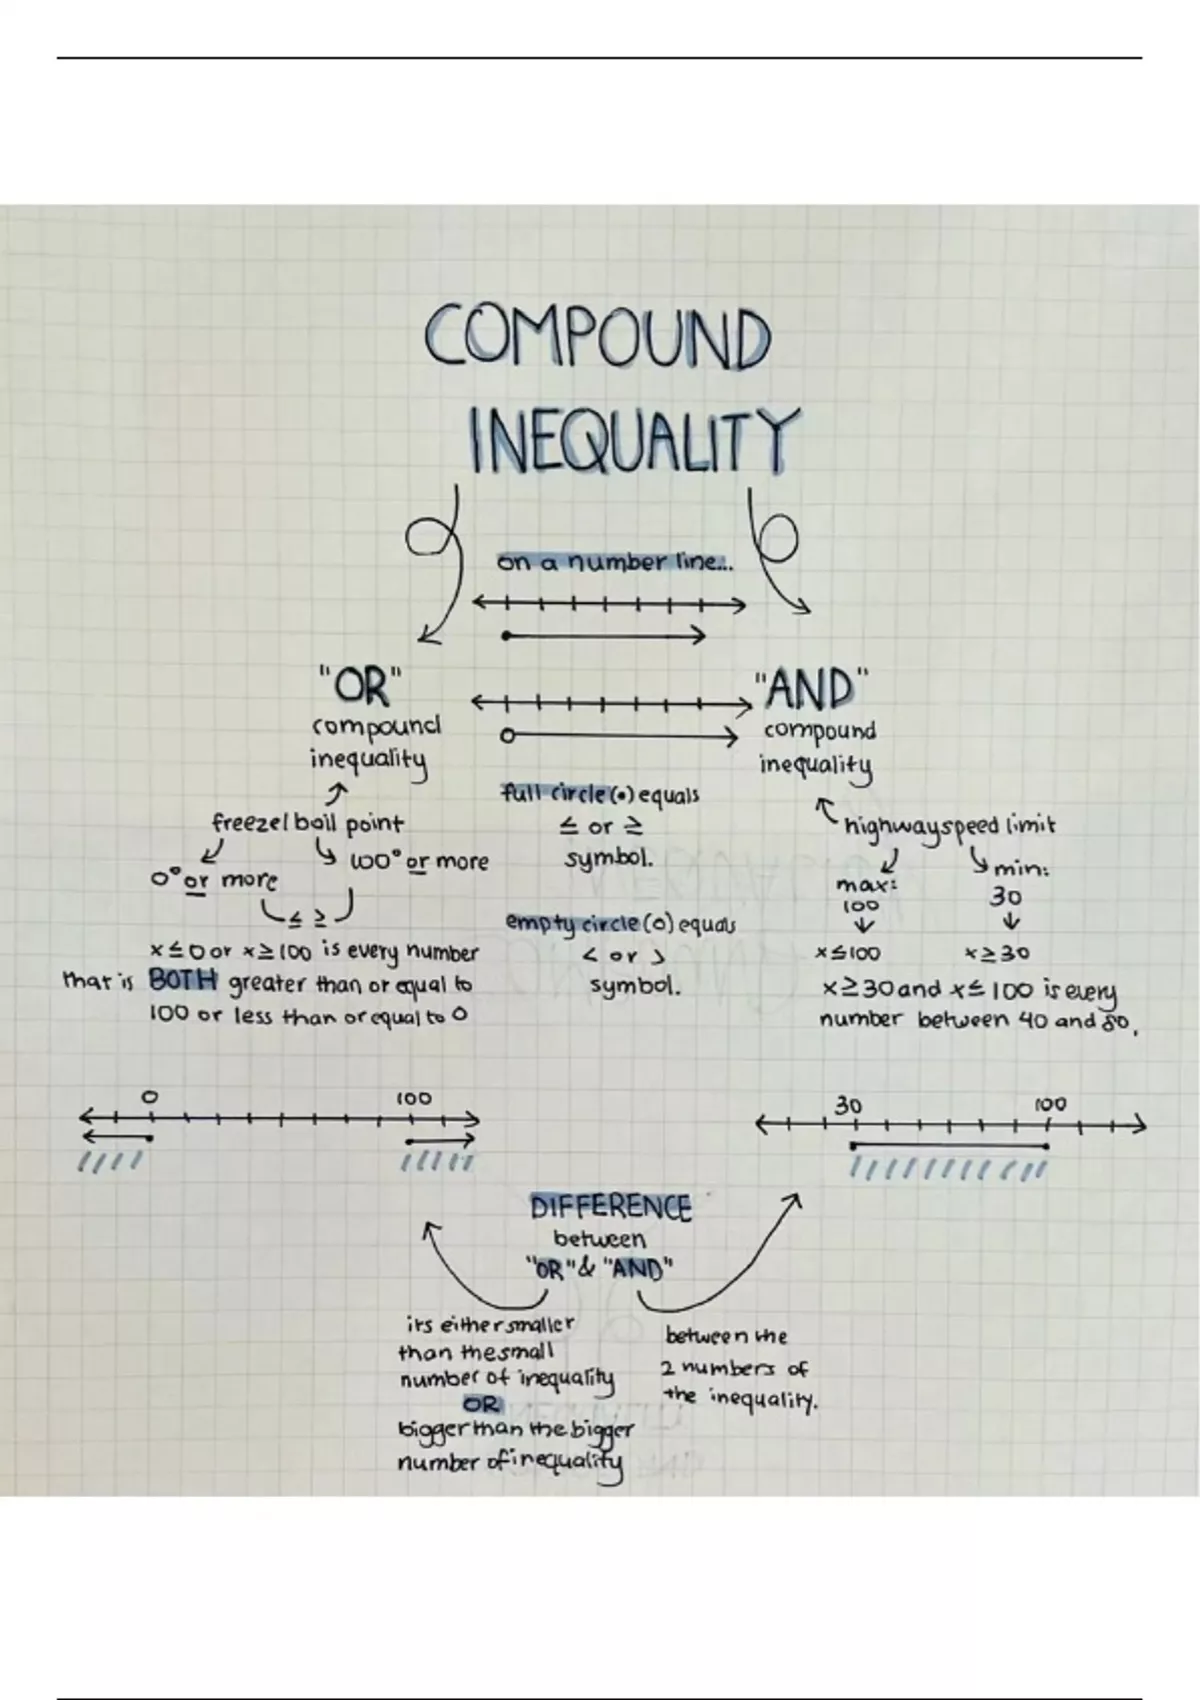 COMPOUND
INEQUALITY
on a number line...
"OR"
compound
inequality
freezel boil point
0° or more
100° or more
≤ ≥
x ≤ 0 or x ≥ 100 is every number
that is BOTH greater than or equal to
100 or less than or equal to 0
0 100
full circle (•) equals
≤ or ≥
symbol.
empty circle (o) equals
< or >
symbol.
"AND"
compound
inequality
highway speed limit
max:
100
x ≤ 100
min:
30
x ≥ 30
x ≥ 30 and x ≤ 100 is every
number between 40 and 80.
30 100
DIFFERENCE
between
"OR" & "AND"
its either smaller
than the small
number of inequality
OR
bigger than the bigger
number of inequality
between the
2 numbers of
the inequality.